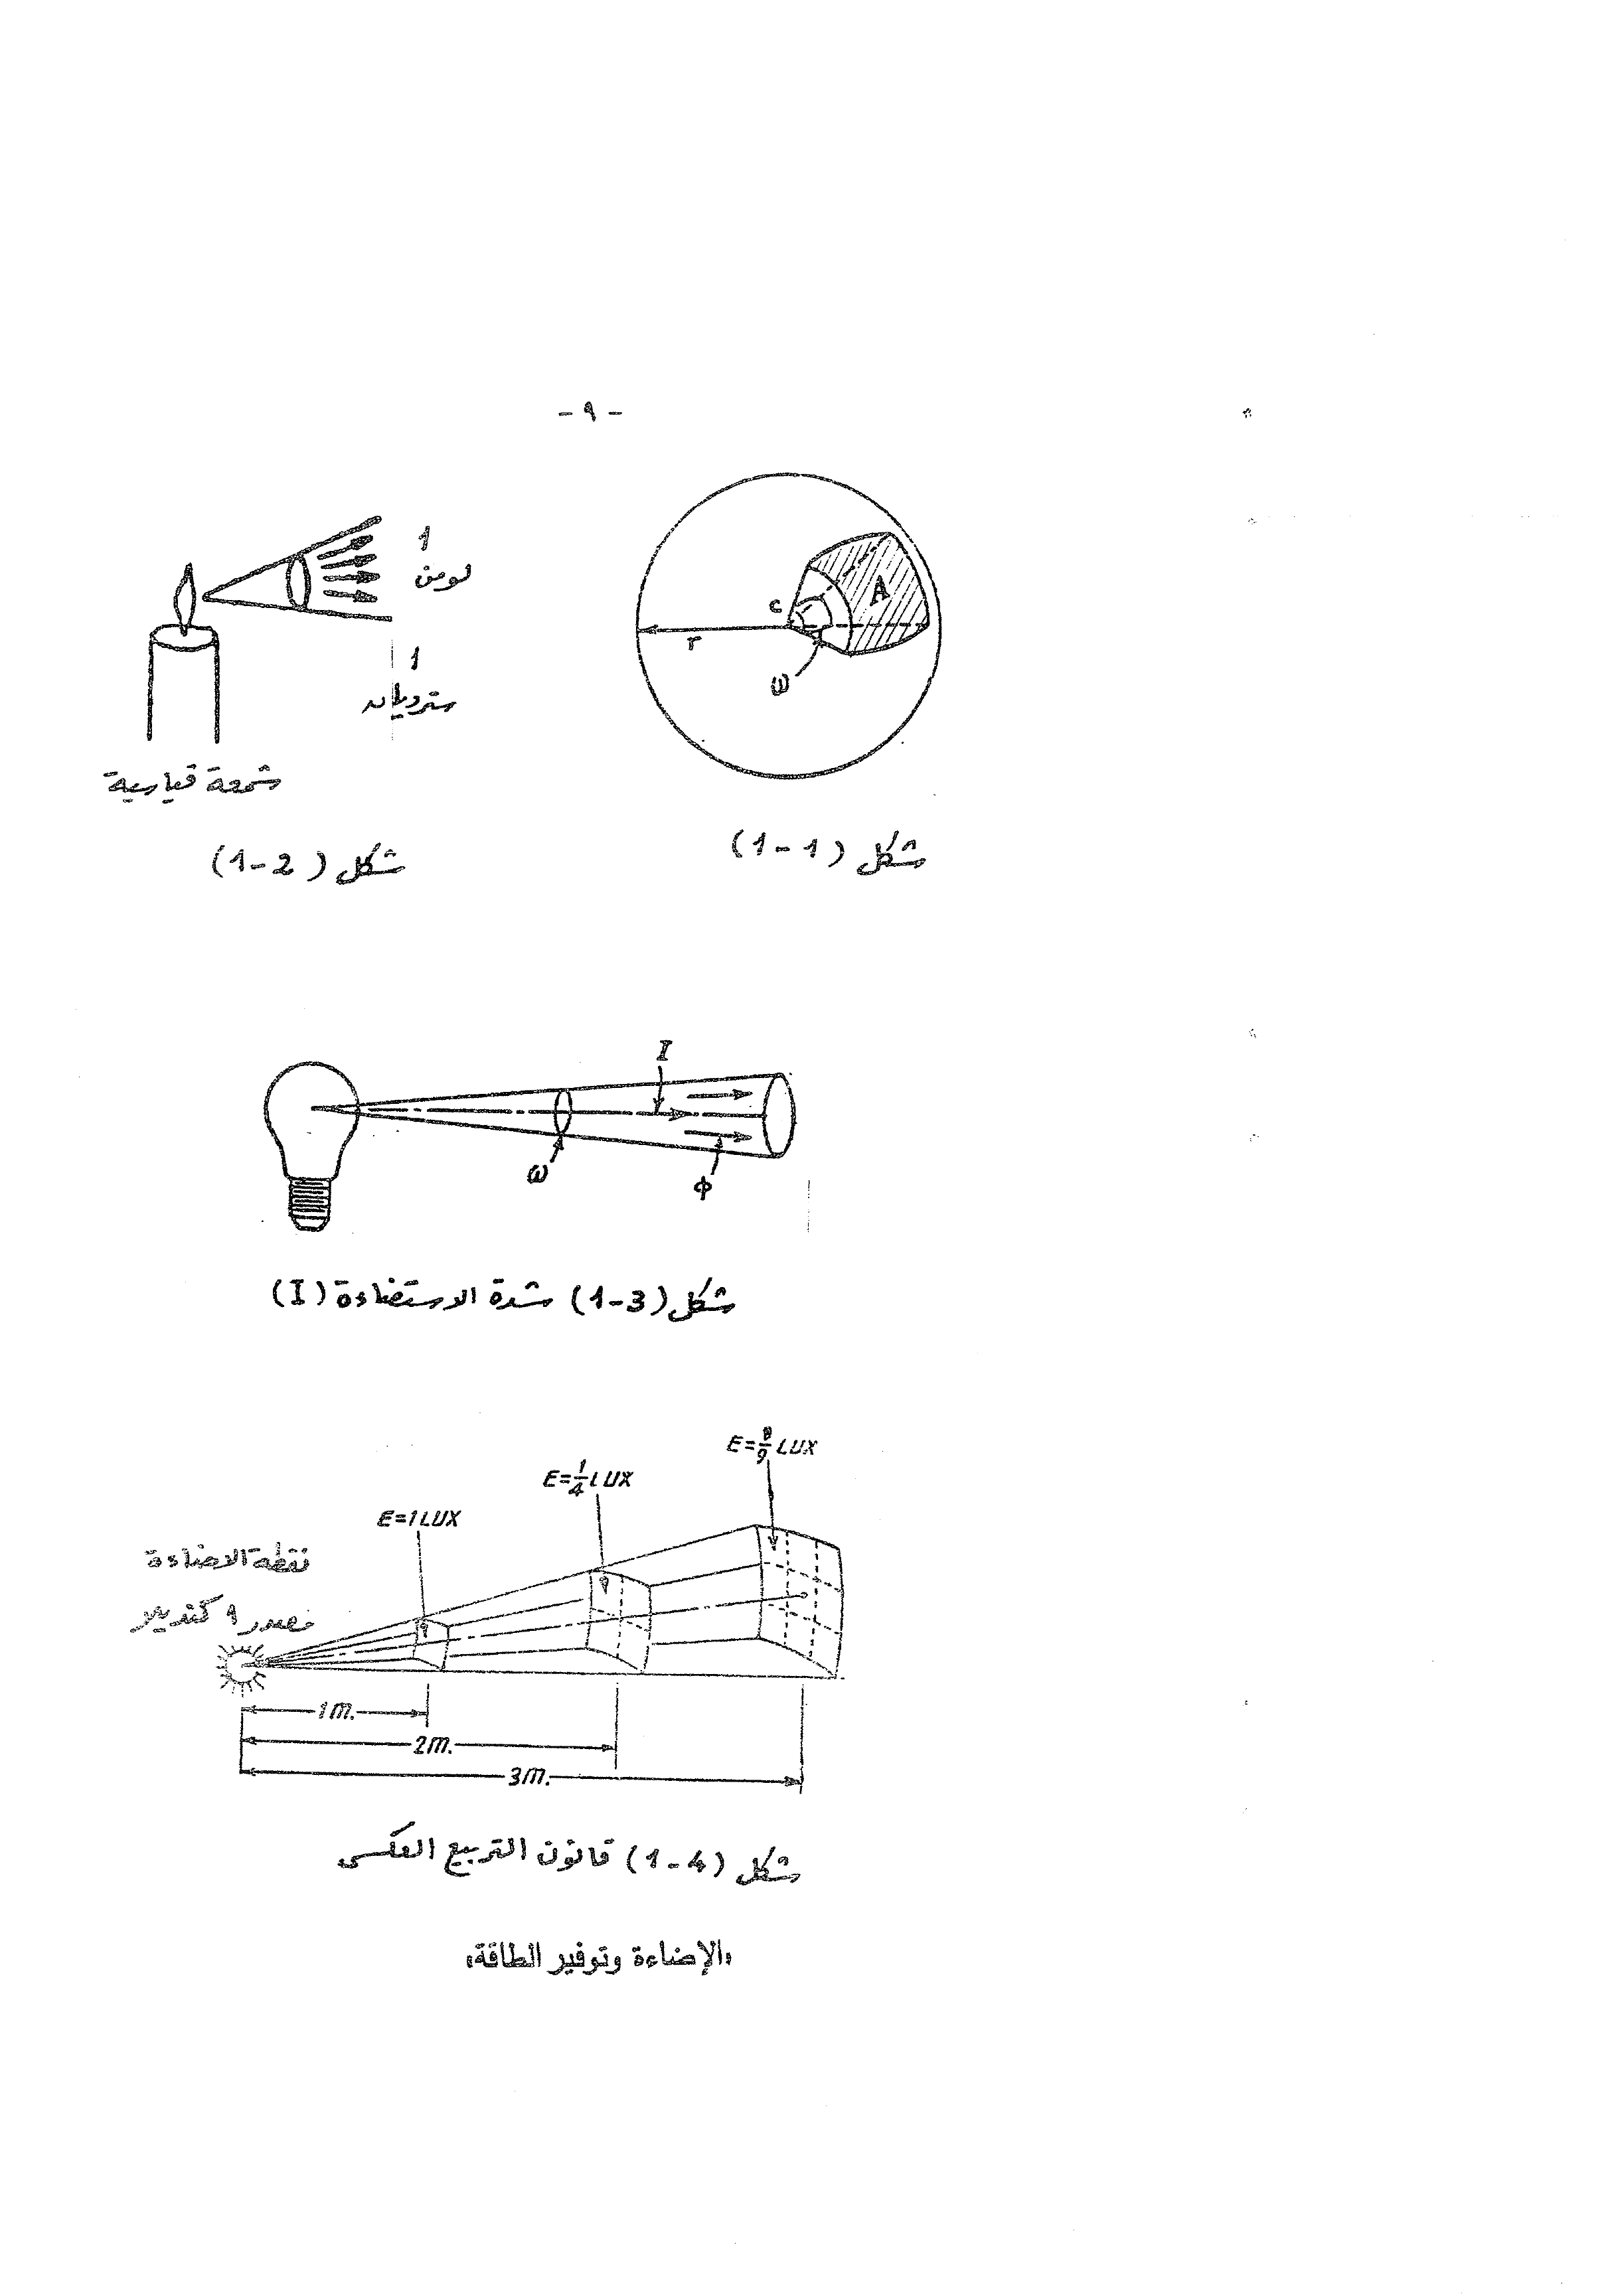 - ٩ -
1
لومن
1
سترديان
شمعة قياسية
c
A
r
ω
شكل (1-1)
شكل (1-2)
I
ω
Φ
شكل (1-3) شدة الاستضاءة (I)
E=1LUX
E=1/4 LUX
E=8/9 LUX
نقطة الاضاءة
1m.
2m.
3m.
شكل (1-4) قانون التربيع العكسي
«الإضاءة وتوفير الطاقة»